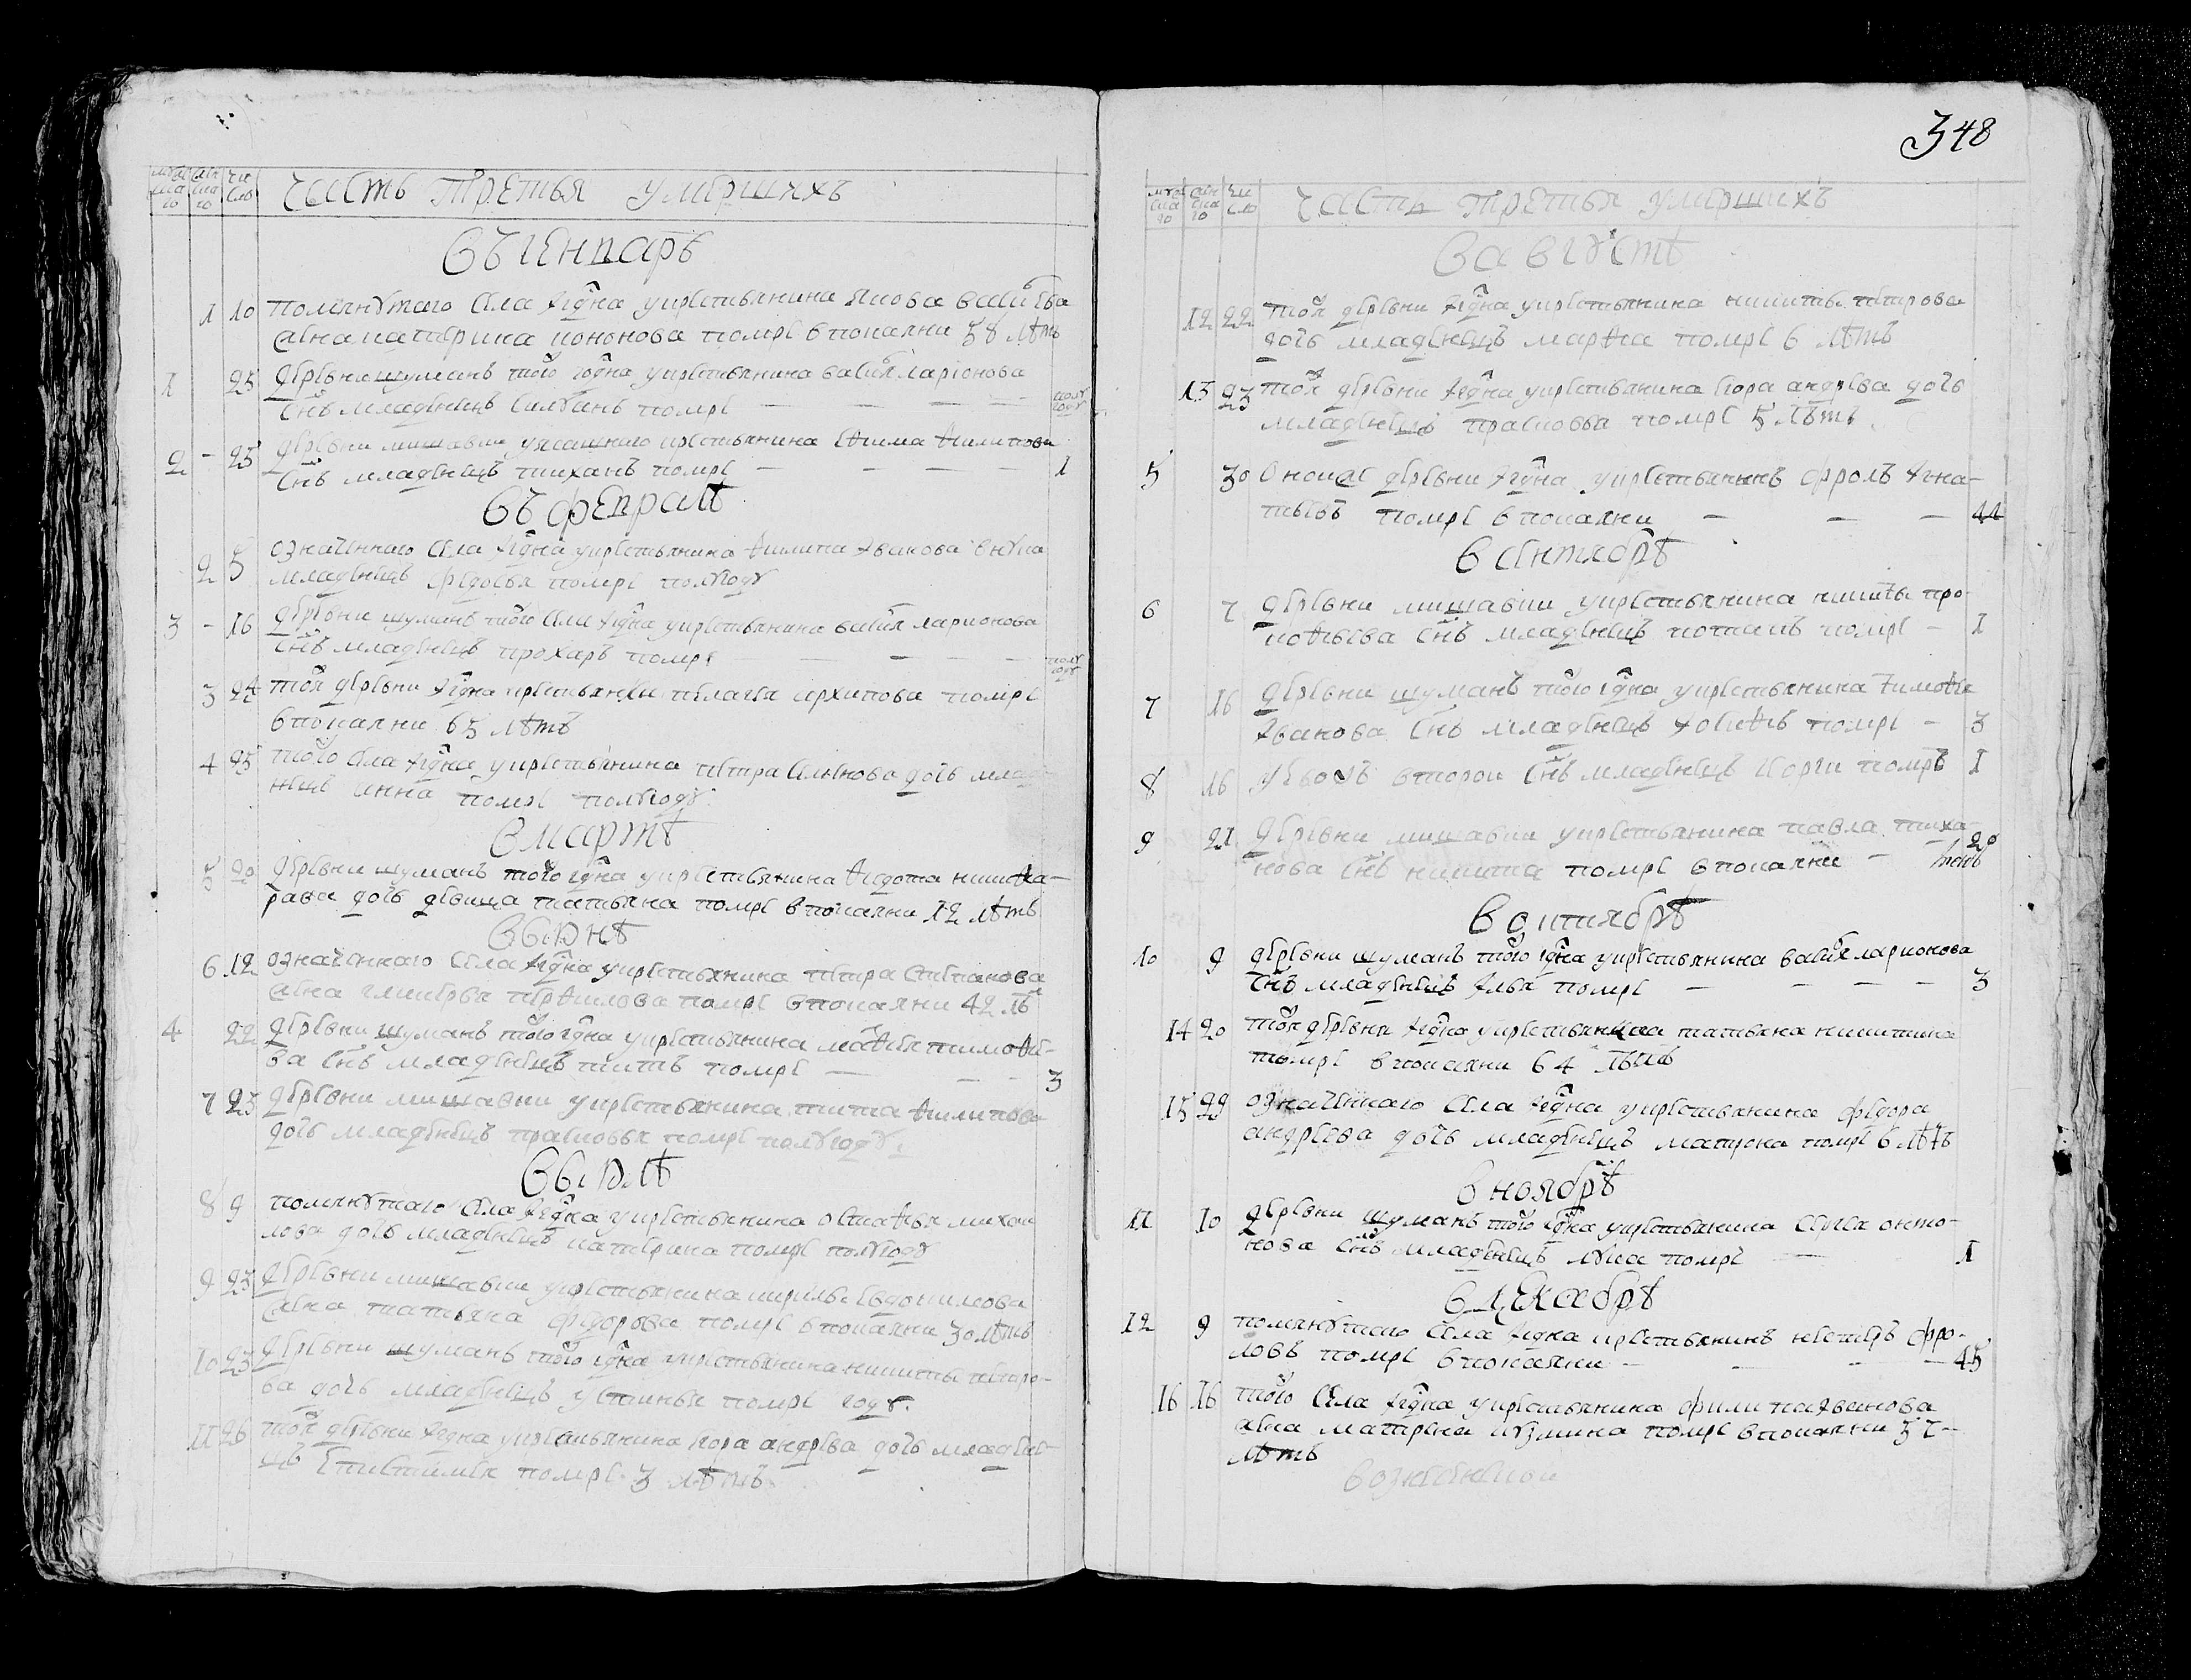 муж ска го
жен ска го
чи сло
часть третья умершихъ
въ генваре
1 10 помянутаго села ... у крестьянина якова василева
жена катерина кононова помре в покаяни 58 летъ
1 25 деревни шуманъ того ... у крестьянина василя ларионова
снъ младенецъ силуанъ помре — — — полу году
2 - 25 деревни мишавки у ясашнаго крестьянина ефима филипова
снъ младенецъ тиханъ помре — — — 1
въ феврале
2 5 означеннаго села ... у крестьянина филипа иванова внука
младенецъ федосья помре полугоду
3 - 16 деревни шуманъ того села ... у крестьянина василя ларионова
снъ младенецъ прохаръ помре — — — полу году
3 24 тоя деревни ... крестьянки пелагея архипова помре
в покаяни 65 летъ
4 25 того села ... у крестьянина петра семенова дочь младе
нецъ анна помре полугоду
в марте
5 20 деревни шуманъ того ... у крестьянина федота никифа-
рава дочь девица татьяна помре в покаяни 12 летъ
в июне
6 12 означеннаго села ... у крестьянина петра степанова
жена гликерья перфилова помре в покаяни 42 ле
4 22 деревни шуманъ того ... у крестьянина матфея тимофе-
ва снъ младенецъ титъ помре — — — 3
7 23 деревни мишавки у крестьянина тита филипова
дочь младенецъ прасковья помре полугоду
в июле
8 9 помянутаго села ... у крестьянина остафья михаи
лова дочь младенецъ катерина помре полугоду
9 23 деревни мишавки у крестьянина кирилы евдокимова
жена татьяна федорова помре в покаяни 30 летъ
10 23 деревни шуманъ того ... у крестьянина никиты петро-
ва дочь младенецъ устинья помре году
11 26 тоя деревни ... у крестьянина егора андрева дочь младене-
цъ епистимья помре 3 летъ
348
муж ска го
жен ска го
чи сло
часть третья умершихъ
в августе
12 22 тоя деревни ... у крестьянина никиты петрова
дочь младенецъ марфа помре 6 летъ
13 23 тоя деревни ... у крестьянина егора андрева дочь
младенецъ прасковья помре 5 летъ
5 30 оное же деревни ... у крестьянинъ фролъ игна-
тьевъ помре в покаяни — — — 44
в сентябре
6 7 деревни мишавки у крестьянина никиты про-
кофьева снъ младенецъ потапъ помре — 1
7 16 деревни шуманъ того ... у крестьянина тимофея
иванова снъ младенецъ иосифъ помре — 3
8 16 у евожъ второи снъ младенецъ егоргеи помре 1
9 21 деревни мишавки у крестьянина павла тиха-
нова снъ никита помре в покаяни — 20
в октябре
10 9 деревни шуманъ того ... у крестьянина василя ларионова
снъ младенецъ илья помре — — — 3
14 20 тоя деревни ... у крестьянкаа татьяна никитина
помре в покаяни 64 летъ
15 29 означеннаго села ... у крестьянина федора
андреева дочь младенецъ матрона помре 6 летъ
в ноябре
11 10 деревни шуманъ того ... у крестьянина сергея онто-
нова снъ младенецъ лука помре — 1
в декабре
12 9 помянутаго села ... крестьянинъ нестеръ фро-
ловъ помре в покаяни — — — 45
16 16 того села ... у крестьянина филипа иванова
жена матрена кузмина помре в покаяни
летъ